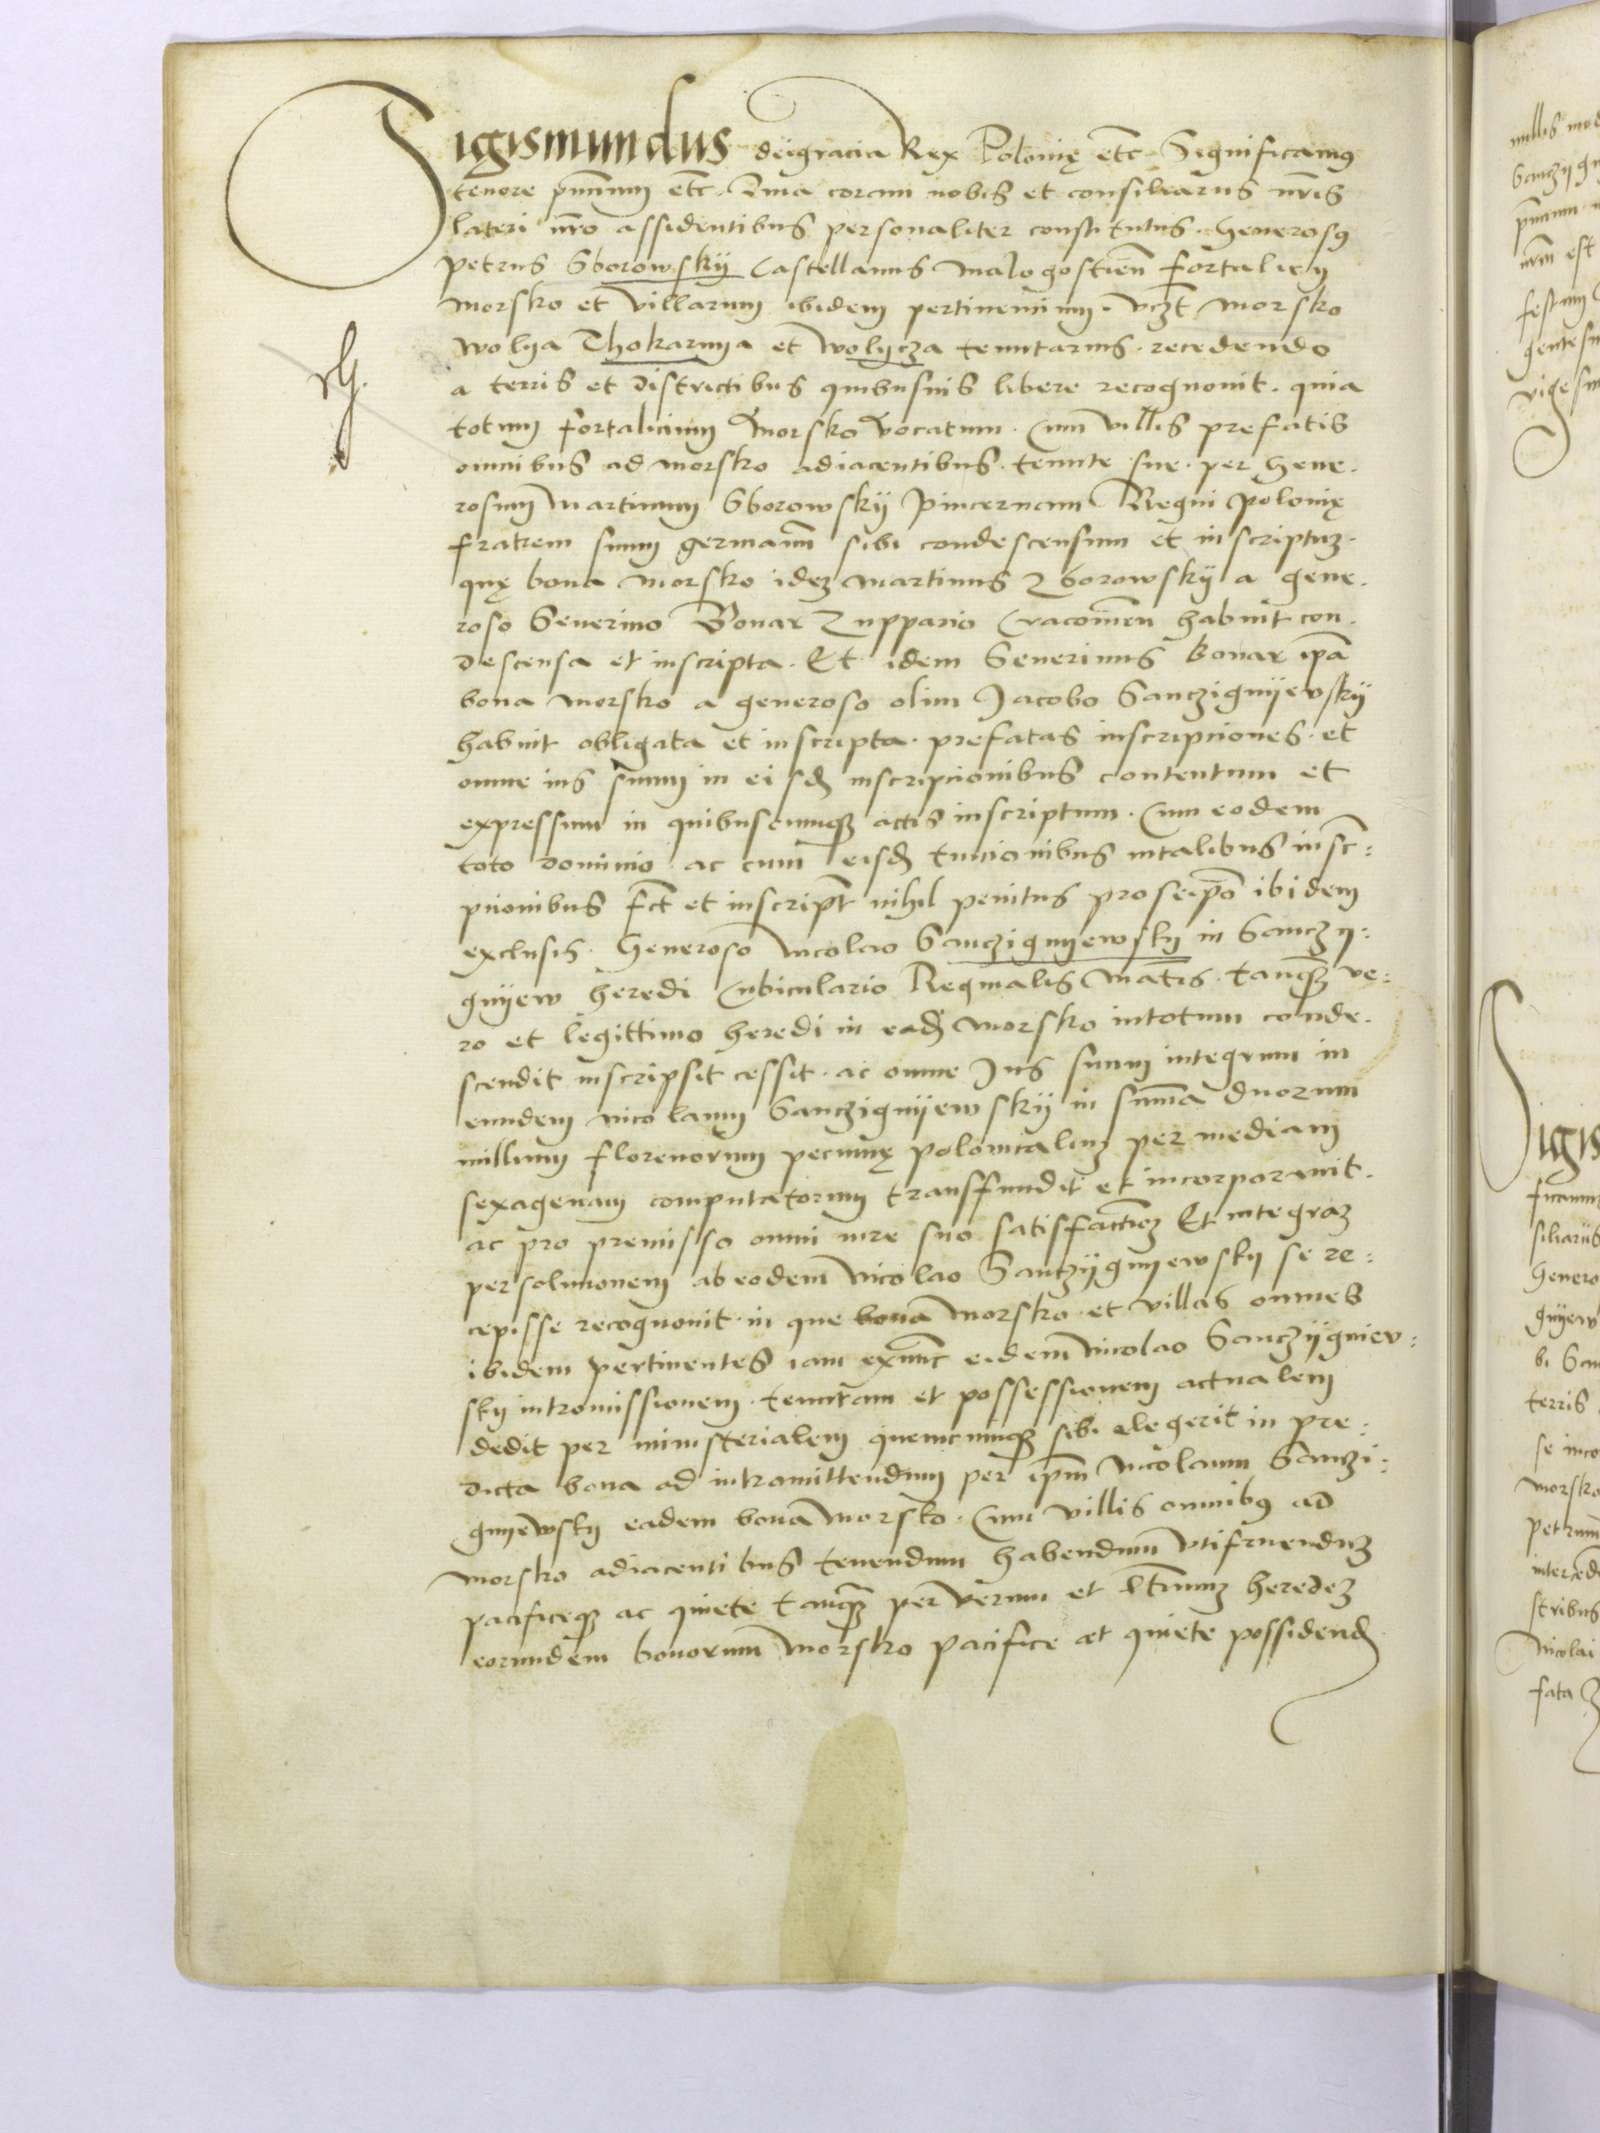 Sigismundus dei gracia Rex Polonię etc Significamus
tenore pñtium etc. Quia coram nobis et consiliariis nr̃is
lateri nr̃o assidentibus personaliter constitutus. Generosus
petrus Sborowskij Castellanus malogostien̄ fortalicij
morsko et villarum ibidem pertinencium. vczt morsko
wolya Thokarnya et wolycza tenutarius. recedendo
a terris et districtibus quibusuis libere recognouit. quia
totum fortalicium morsko vocatum. Cum villis prefatis
omnibus ad morsko adiacentibus. tenute sue. per Gene-
rosum Martinum Sborowskij Pincernam Regni polonię
fratrem suum germanum sibi condescensum et inscriptuz.
quę bona morsko idez martinus Zborowskij a gene-
roso Seuerino Bonar Zuppario Cracouien̄ habuit con-
descensa et inscripta. Et idem Seuerinus bonar ip̄a
bona morsko a generoso olim Jacobo Sanczignijevskij
habuit obligata et inscripta. prefatas inscripciones. et
omne ius suum in eisd inscripcionibus contentum et
expressum in quibuscumqz actis inscriptum. Cum eodem
toto dominio. ac cum eisd
pcionibus fct et inscript nihil penitus pro seip̄o ibidem
exclusis. Generoso nicolao Sanczignyewsky in Sanczy-
gnijew heredi Cubiculario Reginalis Mātis. tanqz ve-
ro et legittimo heredi in ead morsko in totum conde-
scendit inscripsit cessit. ac omne Jus suum integrum in
eundem nicolaum Sanczignijewskij in sum̄a duorum
millium florenorum pecunię polonicaliuz per mediam
sexagenam computatorum transffundit et incorporauit.
ac pro premisso omni iure suo satisfactioēz Et integraz
persolucionem ab eodem Nicolao Sanczijgnyewsky se re-
cepisse recognouit. in que bona morsko et villas omnes
ibidem pertinentes iam exnunc eidem Nicolao Sanczijgniew-
sky intromissionem. tenutam et possessionem actualem
dedit per ministerialem quemcumqz sibi elegerit in pre-
dicta bona ad intromittendum per ip̄m Nicolaum Sanczi-
gnyewsky eadem bona morsko. Cum villis omnibus ad
morsko adiacentibus tenendum habendum vtifruenduz
pacificeqz ac quiete tanqz per verum et ltīmuz heredez
eorundem bonorum morsko pacifice et quiete possidend